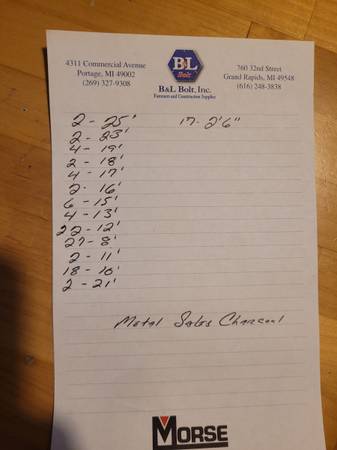 4311 Commercial Avenue
Portage, MI 49002
(269) 327-9308
B&L
Bolt
B&L Bolt, Inc.
Fasteners and Construction Supplies
760 32nd Street
Grand Rapids, MI 49548
(616) 248-3838
2 - 25'
17- 2'6"
2 - 23'
4 - 19'
2 - 18'
4 - 17'
2- 16'
6 - 15'
4 - 13'
22 - 12'
27 - 8'
2 - 11'
18 - 10'
2 - 21'
Metal Sales Charcoal
MORSE